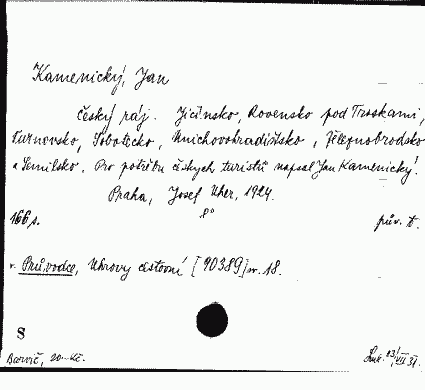 Kamenický, Jan
Český ráj. Jičínsko, Rovensko pod Troskami,
Turnovsko, Sobotecko, Mnichovohradištsko, Železnobrodsko
a Semilsko. Pro potřebu českých turistů napsal Jan Kamenický.
Praha, Josef Uher, 1924.
8°
166 s. pův. b.
v. Průvodce, Uhrovy cestovní [90389] sv. 18.
S
Barvič, 20.- Kč. 13/VII 31.